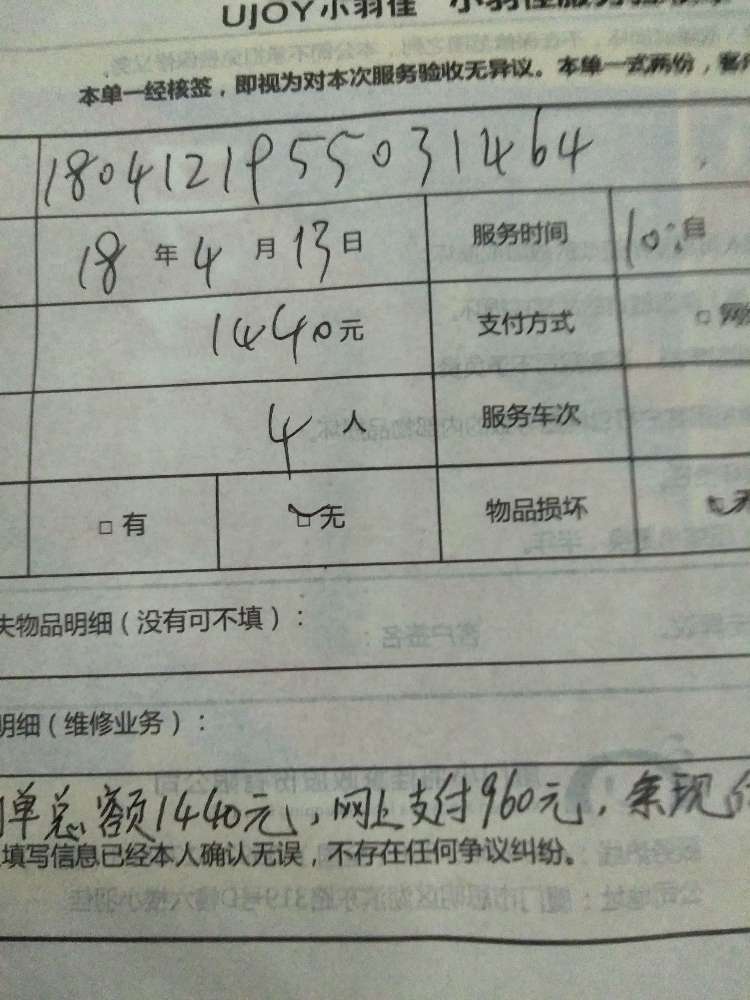 UJOY小羽佳 小羽佳服务验收单
本单一经核签，即视为对本次服务验收无异议。本单一式两份，客
18041219550031464
18 年 4 月 13 日 服务时间 10:
1440 元 支付方式 □ 网
4 人 服务车次
□ 有 □ 无 物品损坏 无
失物品明细（没有可不填）：
明细（维修业务）：
单总额1440元，网上支付960元，余现
填写信息已经本人确认无误，不存在任何争议纠纷。